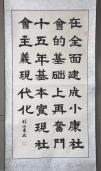 在全面建成小康社
會的基础上再奮鬥
十五年基本實現社
會主義現代化